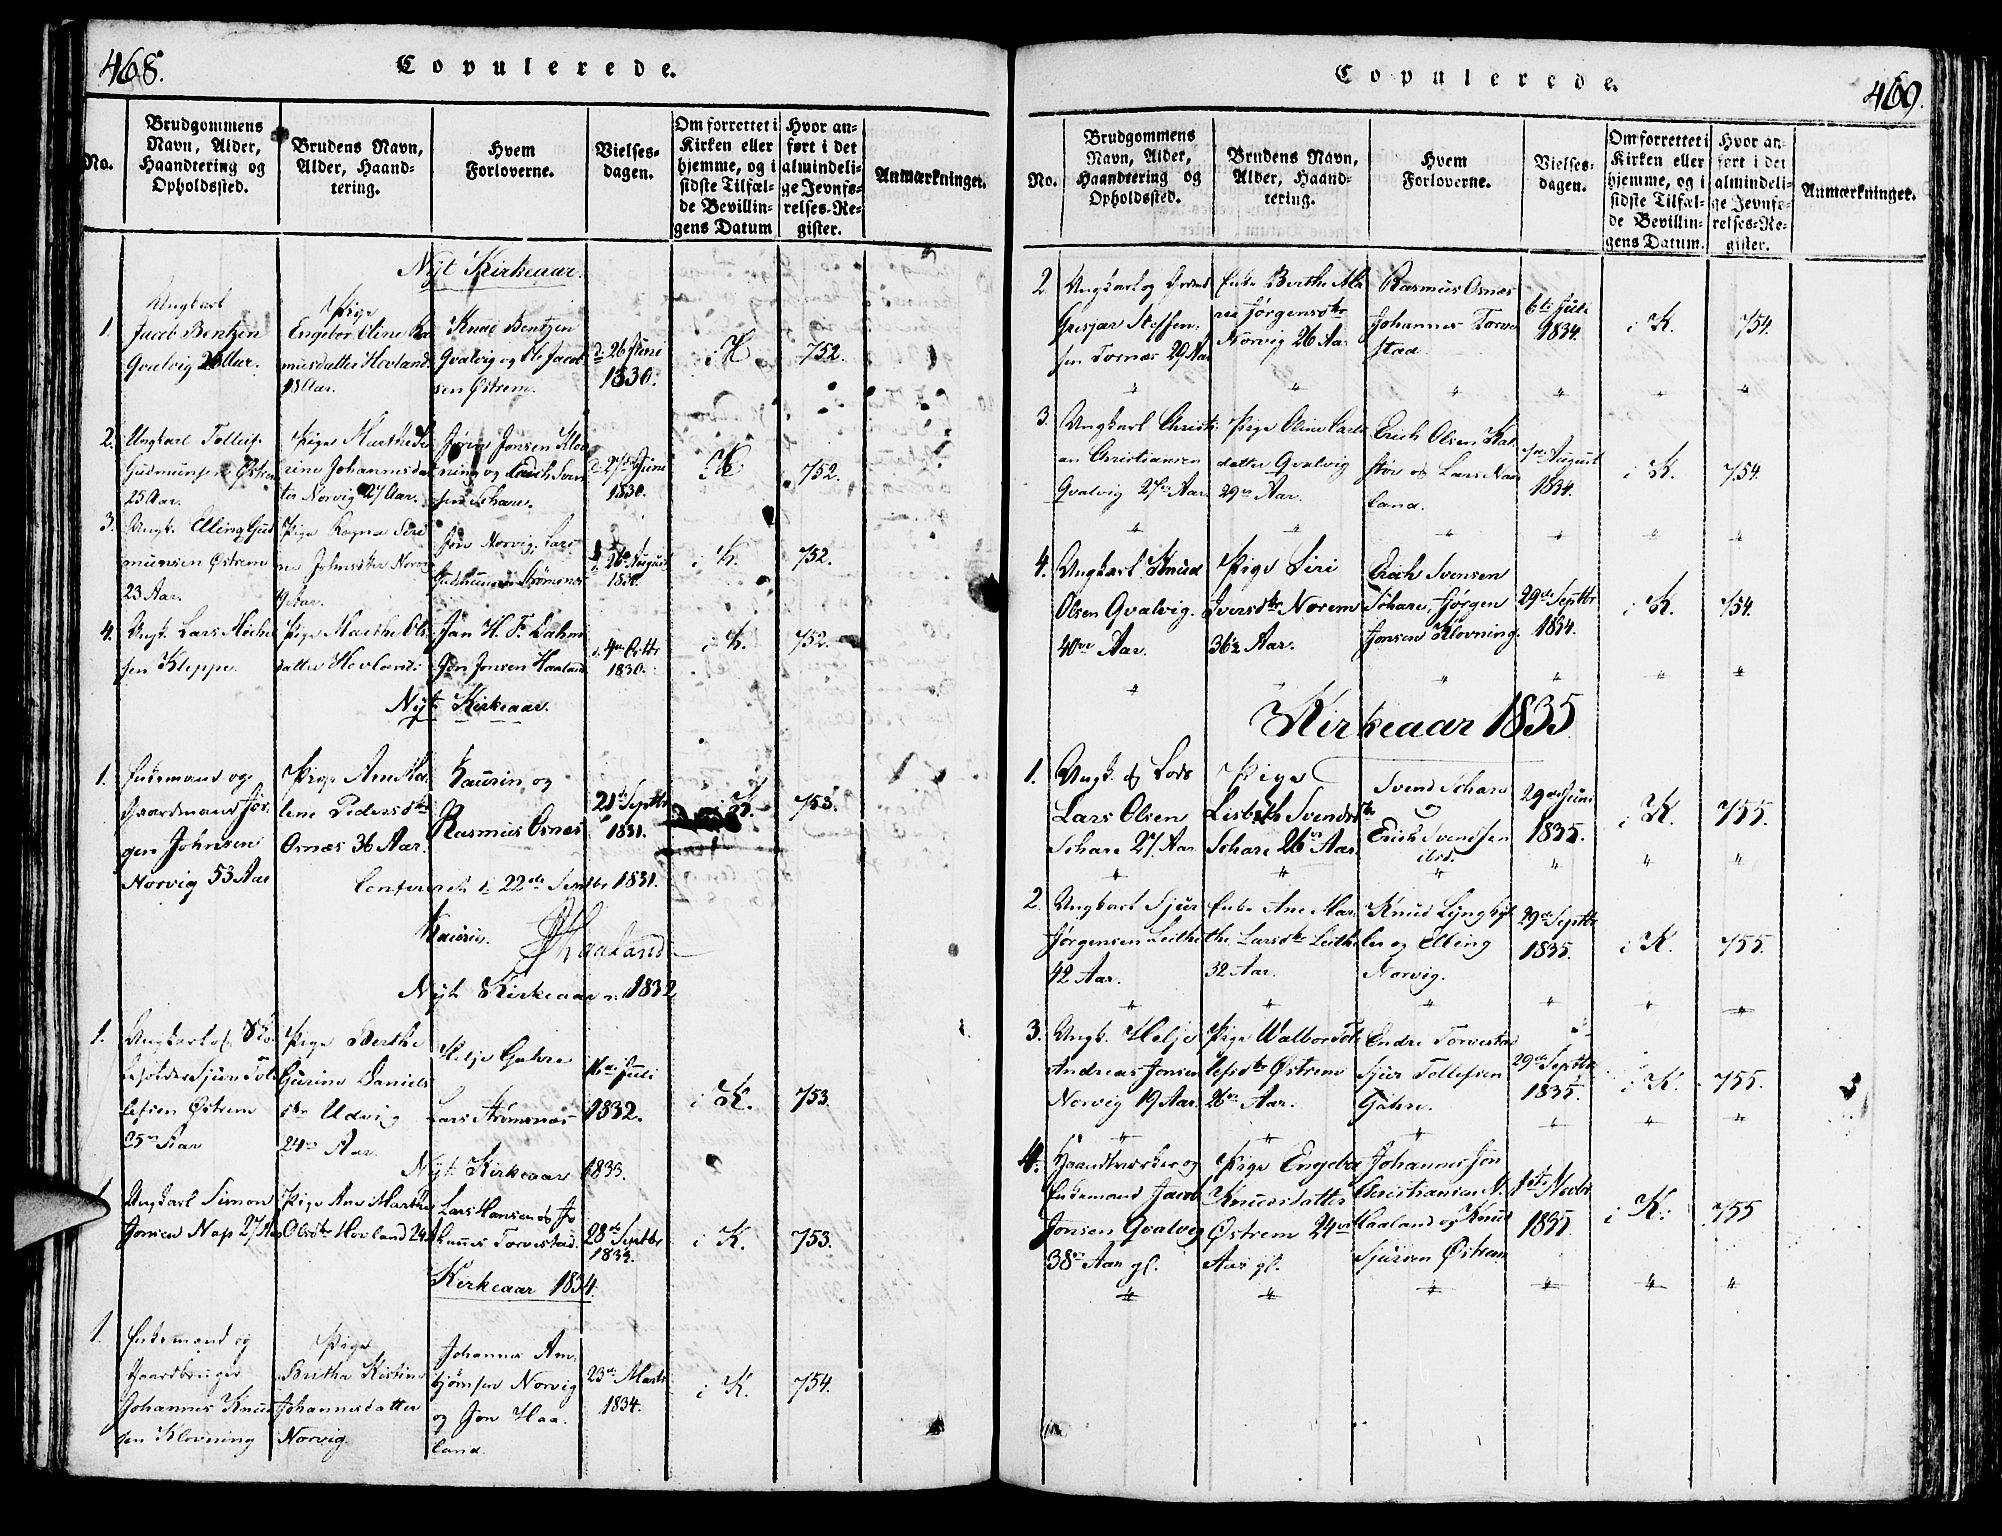 468.
Copulerede.
No.
Brudgommens
Navn, Alder,
Haandtering og
Opholdssted.
Brudens Navn,
Alder, Haand-
tering.
Hvem
Forloverne.
Vielses-
dagen.
Om forrettet i
Kirken eller
hjemme, og i
sidste Tilfæl-
de Bevillin-
gens Datum
Hvor an-
ført i det
almindeli-
ge Jevnfø-
relses-Re-
gister.
Anmærkninger.
Nyt Kirkeaar.
1.
Ungkarl
Jacob Bentzen
Qvalvig Aar.
Pige
Engebor Oline Ras
musdatter Hovland
18 Aar.
Knud Bentzen
Qvalvig og Ole Jacob
sen Østrem.
d 26 Juni
1830.
i K
752.
2.
Ungkarl Tollef
Gudmunsen Østrem
25 Aar.
Pige Marthe
rine Johannesdat
ter Norvig 27 Aar.
Jørgen Jonsen Klov
ning og Erich Sven
sen Schare.
d 27de Juni
1830.
i K
752.
3.
Ungk. Elling Gud
munsen Østrem
23 Aar.
Pige Ragna Seri
na Johnsdtr Norvig
19 Aar.
Jon Norvig, Lars
Gudmunsen Strømsnes
26de August
1830.
i K.
752.
4.
Ungk. Lars Miche
sen Kleppe.
Pige Marthe Ols
datter Hovland.
Jan H. F. Dahm
Jon Jonsen Haaland
4de Octbr
1830.
i K.
752.
Nyt Kirkeaar.
1.
Enkemand og
Gaardmand Jør
gen Johnsen
Norvig 53 Aar
Pige Ane Ma
lene Pedersdtr
Osnæs 36 Aar.
Kaurin, og
Rasmus Osnæs
21de Septbr
1831.
i K.
753.
Confereret d 22de Septbr 1831.
Kaurin. Haaland
Nyt Kirkeaar 1832
1.
Ungkarl og
Sjur Tol
lefsen Østrem
25 Aar
Pige Berthe
Gurine Daniels
dtr Udvig
24 Aar.
Helje Gahre
Lars Strømsnæs
16de Juli
1832.
i K.
753.
Nyt Kirkeaar 1833.
1
Ungkarl Simon
Jonsen Nap 27 Aar
Pige Ane Marthe
Olsdtr Hovland 24 A
Lars Hansen og Jo
hannes Torvestad.
28de Septbr
1833.
i K.
753.
Kirkeaar 1834.
1.
Enkemand og
Gaardbruger
Johannes Knud
sen Klovning
Pige
Britha Kistine
Johannesdatter
Norvig.
Johannes Am
bjørnsen Norvig
og Jon Haa
land.
23de Marts
1834.
i K.
754.
469.
Copulerede.
No.
Brudgommens
Navn, Alder,
Haandtering og
Opholdssted.
Brudens Navn,
Alder, Haand-
tering.
Hvem
Forloverne.
Vielses-
dagen.
Om forrettet i
Kirken eller
hjemme, og i
sidste Tilfæl-
de Bevillin-
gens Datum.
Hvor an-
ført i det
almindeli-
ge Jevnfø-
relses-Re-
gister.
Anmærkninger.
2
Ungkarl og
Gresjær Steffen
sen Tornæs 29 Aar
Enke Berthe Ma
rie Jørgensdtr
Norvig 26 Aar
Rasmus Osnæs
Johannes Torve
stad.
6te Juli
1834.
i K.
754.
3.
Ungkarl Christi
an Christiansen
Qvalvig 27 Aar
Pige Oline Carls
datter Qvalvig
29 Aar.
Erich Olsen Kal
stoe og Lars Nær
land.
7de August
1834.
i K.
754.
4.
Ungkarl Knud
Olsen Qvalvig.
40 Aar.
Pige Siri
Iversdtr Norem
36½ Aar.
Erich Svensen
Schare, Jørgen
Jonsen Klovning.
29de Septbr
1834.
i K.
754.
Kirkeaar 1835
1.
Ungk. og Lods
Lars Olsen
Schare 27 Aar
Pige
Lisbeth Svendsdtr
Schare 26 Aar.
Svend Schare
og
Erich Svendsen
ibid.
29de Juni
1835.
i K.
755.
2.
Ungkarl Sjur
Jørgensen Leithe
42 Aar.
Enke Ane Mar
the Larsdtr Leithe
32 Aar.
Knud Lynghol
len og Elling
Norvig.
29de Septbr
1835.
i K.
755.
3.
Ungk. Helje
Andreas Jonsen
Norvig 19 Aar.
Pige Walbor Tol
lefsdtr Østrem
26 Aar.
Endre Torvestad
Sjur Tollefsen
Gahre.
29de Septbr
1835.
i K.
755.
4.
Haandtværker og
Enkemand Jacob
Jonsen Qvalvig
38 Aar gl.
Pige Engebor
Knudsdatter
Østrem 24
Aar gl.
Johannes Jon
Christiansen N.
Haaland og Knud
Sjursen Østrem
1ste Novbr
1835.
i K.
755